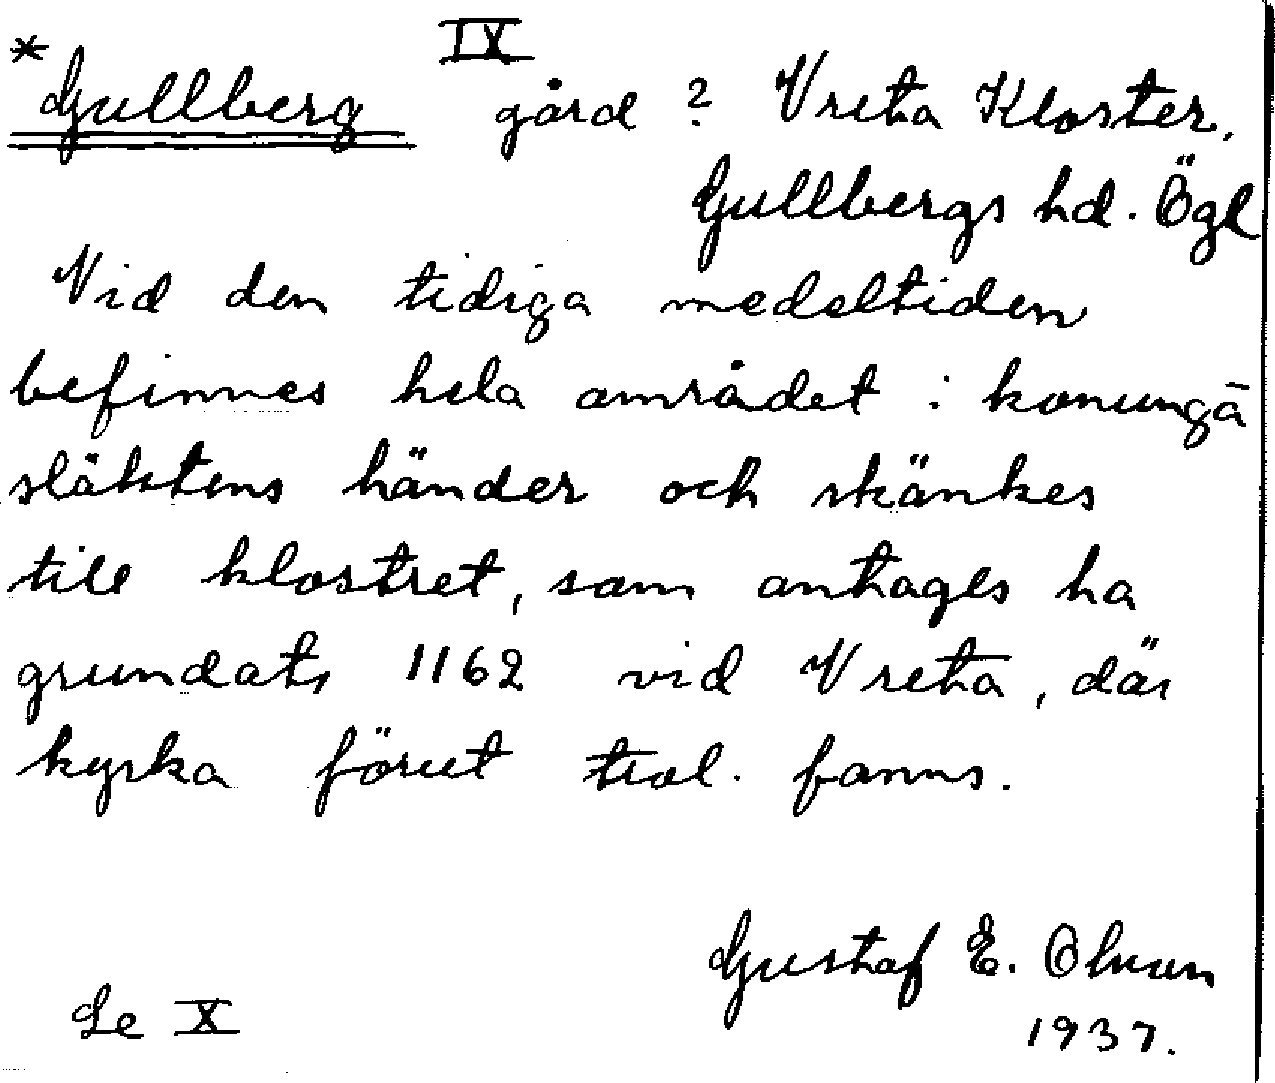 IX
*Gullberg gård ? Vreta Kloster,
Gullbergs hd. Ögl
Vid den tidiga medeltiden
befinnes hela området i konunga
släktens händer och skänkes
till klostret, som antages ha
grundats 1162 vid Vreta, där
kyrka förut trol. fanns.
Gustaf E. Olsson
1937.
Se X